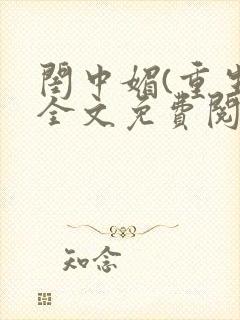 閨中媚(重生
全文免費閱
知念